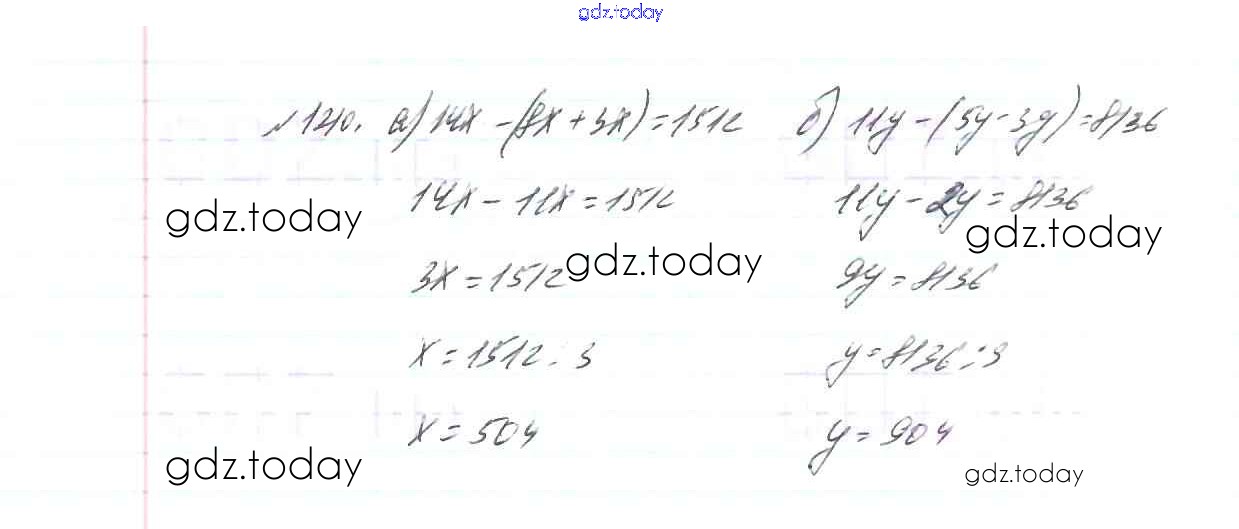 gdz.today
№1210. а) 14x - (8x + 3x) = 1512 б) 11y - (5y - 3y) = 8136
14x - 11x = 1512 11y - 2y = 8136
gdz.today gdz.today
gdz.today
3x = 1512 9y = 8136
x = 1512 : 3 y = 8136 : 9
x = 504 y = 904
gdz.today gdz.today